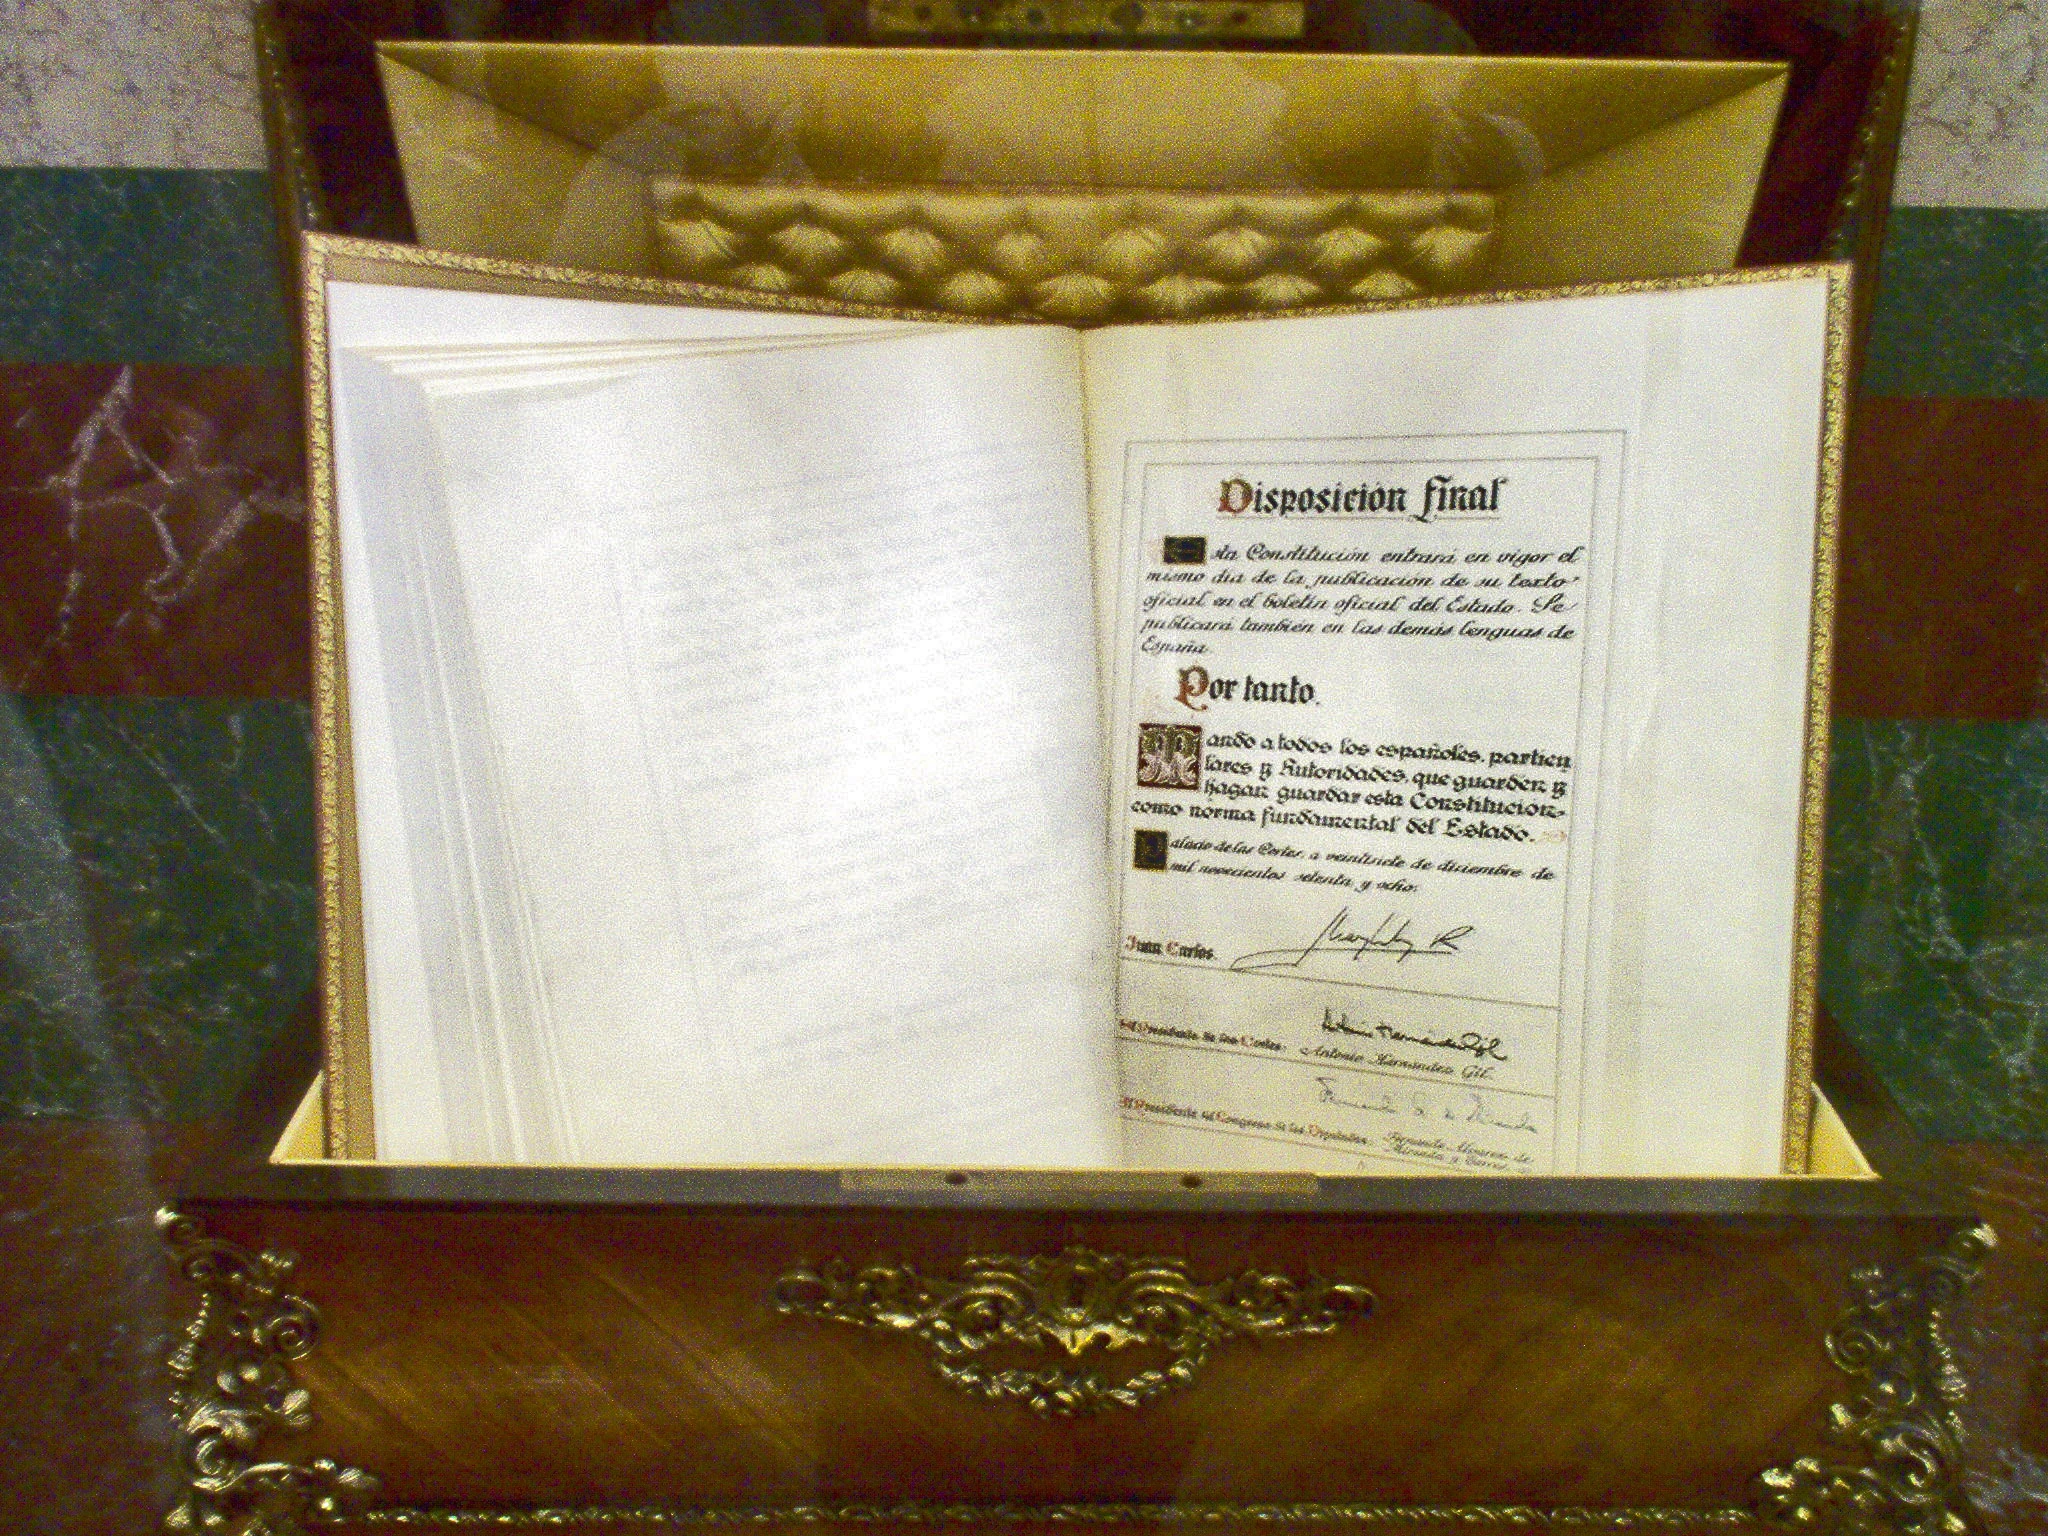 Disposición final
Esta Constitución entrará en vigor el
mismo día de la publicación de su texto
oficial en el boletín oficial del Estado. Se
publicará también en las demás lenguas de
España.
Por tanto.
Mando a todos los españoles, particu
lares y Autoridades, que guarden y
hagan guardar esta Constitución
como norma fundamental del Estado.
Palacio de las Cortes, a veintisiete de diciembre de
mil novecientos setenta y ocho.
Juan Carlos
El Presidente de las Cortes Antonio Hernández Gil.
El Presidente del Congreso de los Diputados Fernando Álvarez de
Miranda y Torres